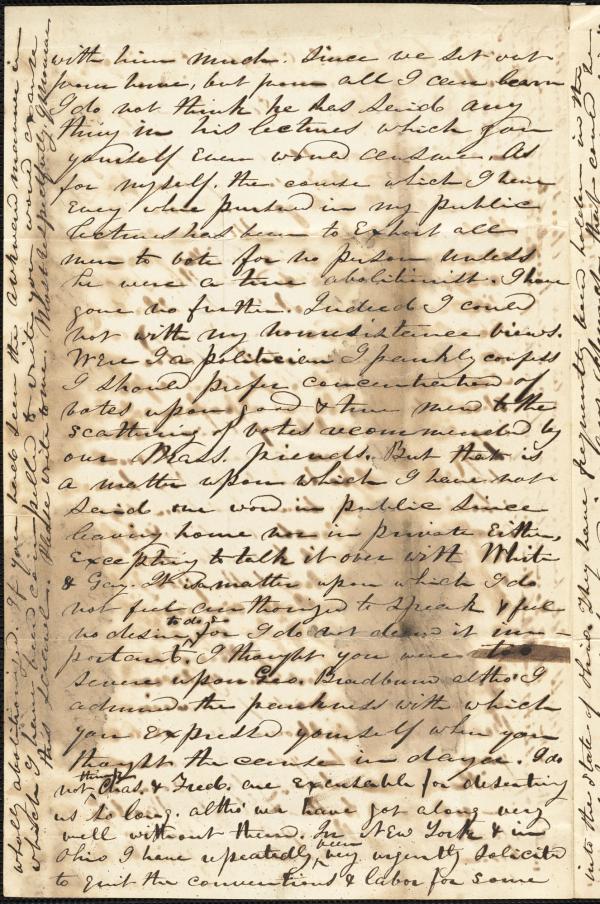 with him much. Since we set out
from home, but from all I can learn
I do not think he has said any
thing in his lectures which you
yourself even would censure. As
for myself. the course which I have
Every where pursued in my public
lectures has been to Exhort all
men to vote for no person unless
he were a true abolitionist. I have
gone no further. Indeed I could
not with my nonresistance views.
Were I a politician I frankly confess
I should prefer concentration of
votes upon good & true men to the
scattering of votes recommended by
our Mass. friends. But that is
a matter upon which I have not
said one word in public since
leaving home nor in private Either,
Excepting to talk it over with White
& Gay. It is a matter upon which I do
not feel authorized to speak & feel
no desire to do so, for I do not deem it im-
portant. I thought you were too
severe upon Geo. Bradburn altho' I
admired the frankness with which
you Expressed yourself when you
thought the cause in danger. I do
not think Chas. & Fred. are Excusable for deserting
us so long. altho' we have got along very
well without them. In New York & in
Ohio I have repeatedly, been very urgently solicited
to quit the conventions & labor for some
wholly abolitionized. If you had seen the awkward manner in
which I have been compelled to write you would excuse
this scrawl. Please write to me. Most respectfully
into the State of Ohio. They have frequently been holden in the